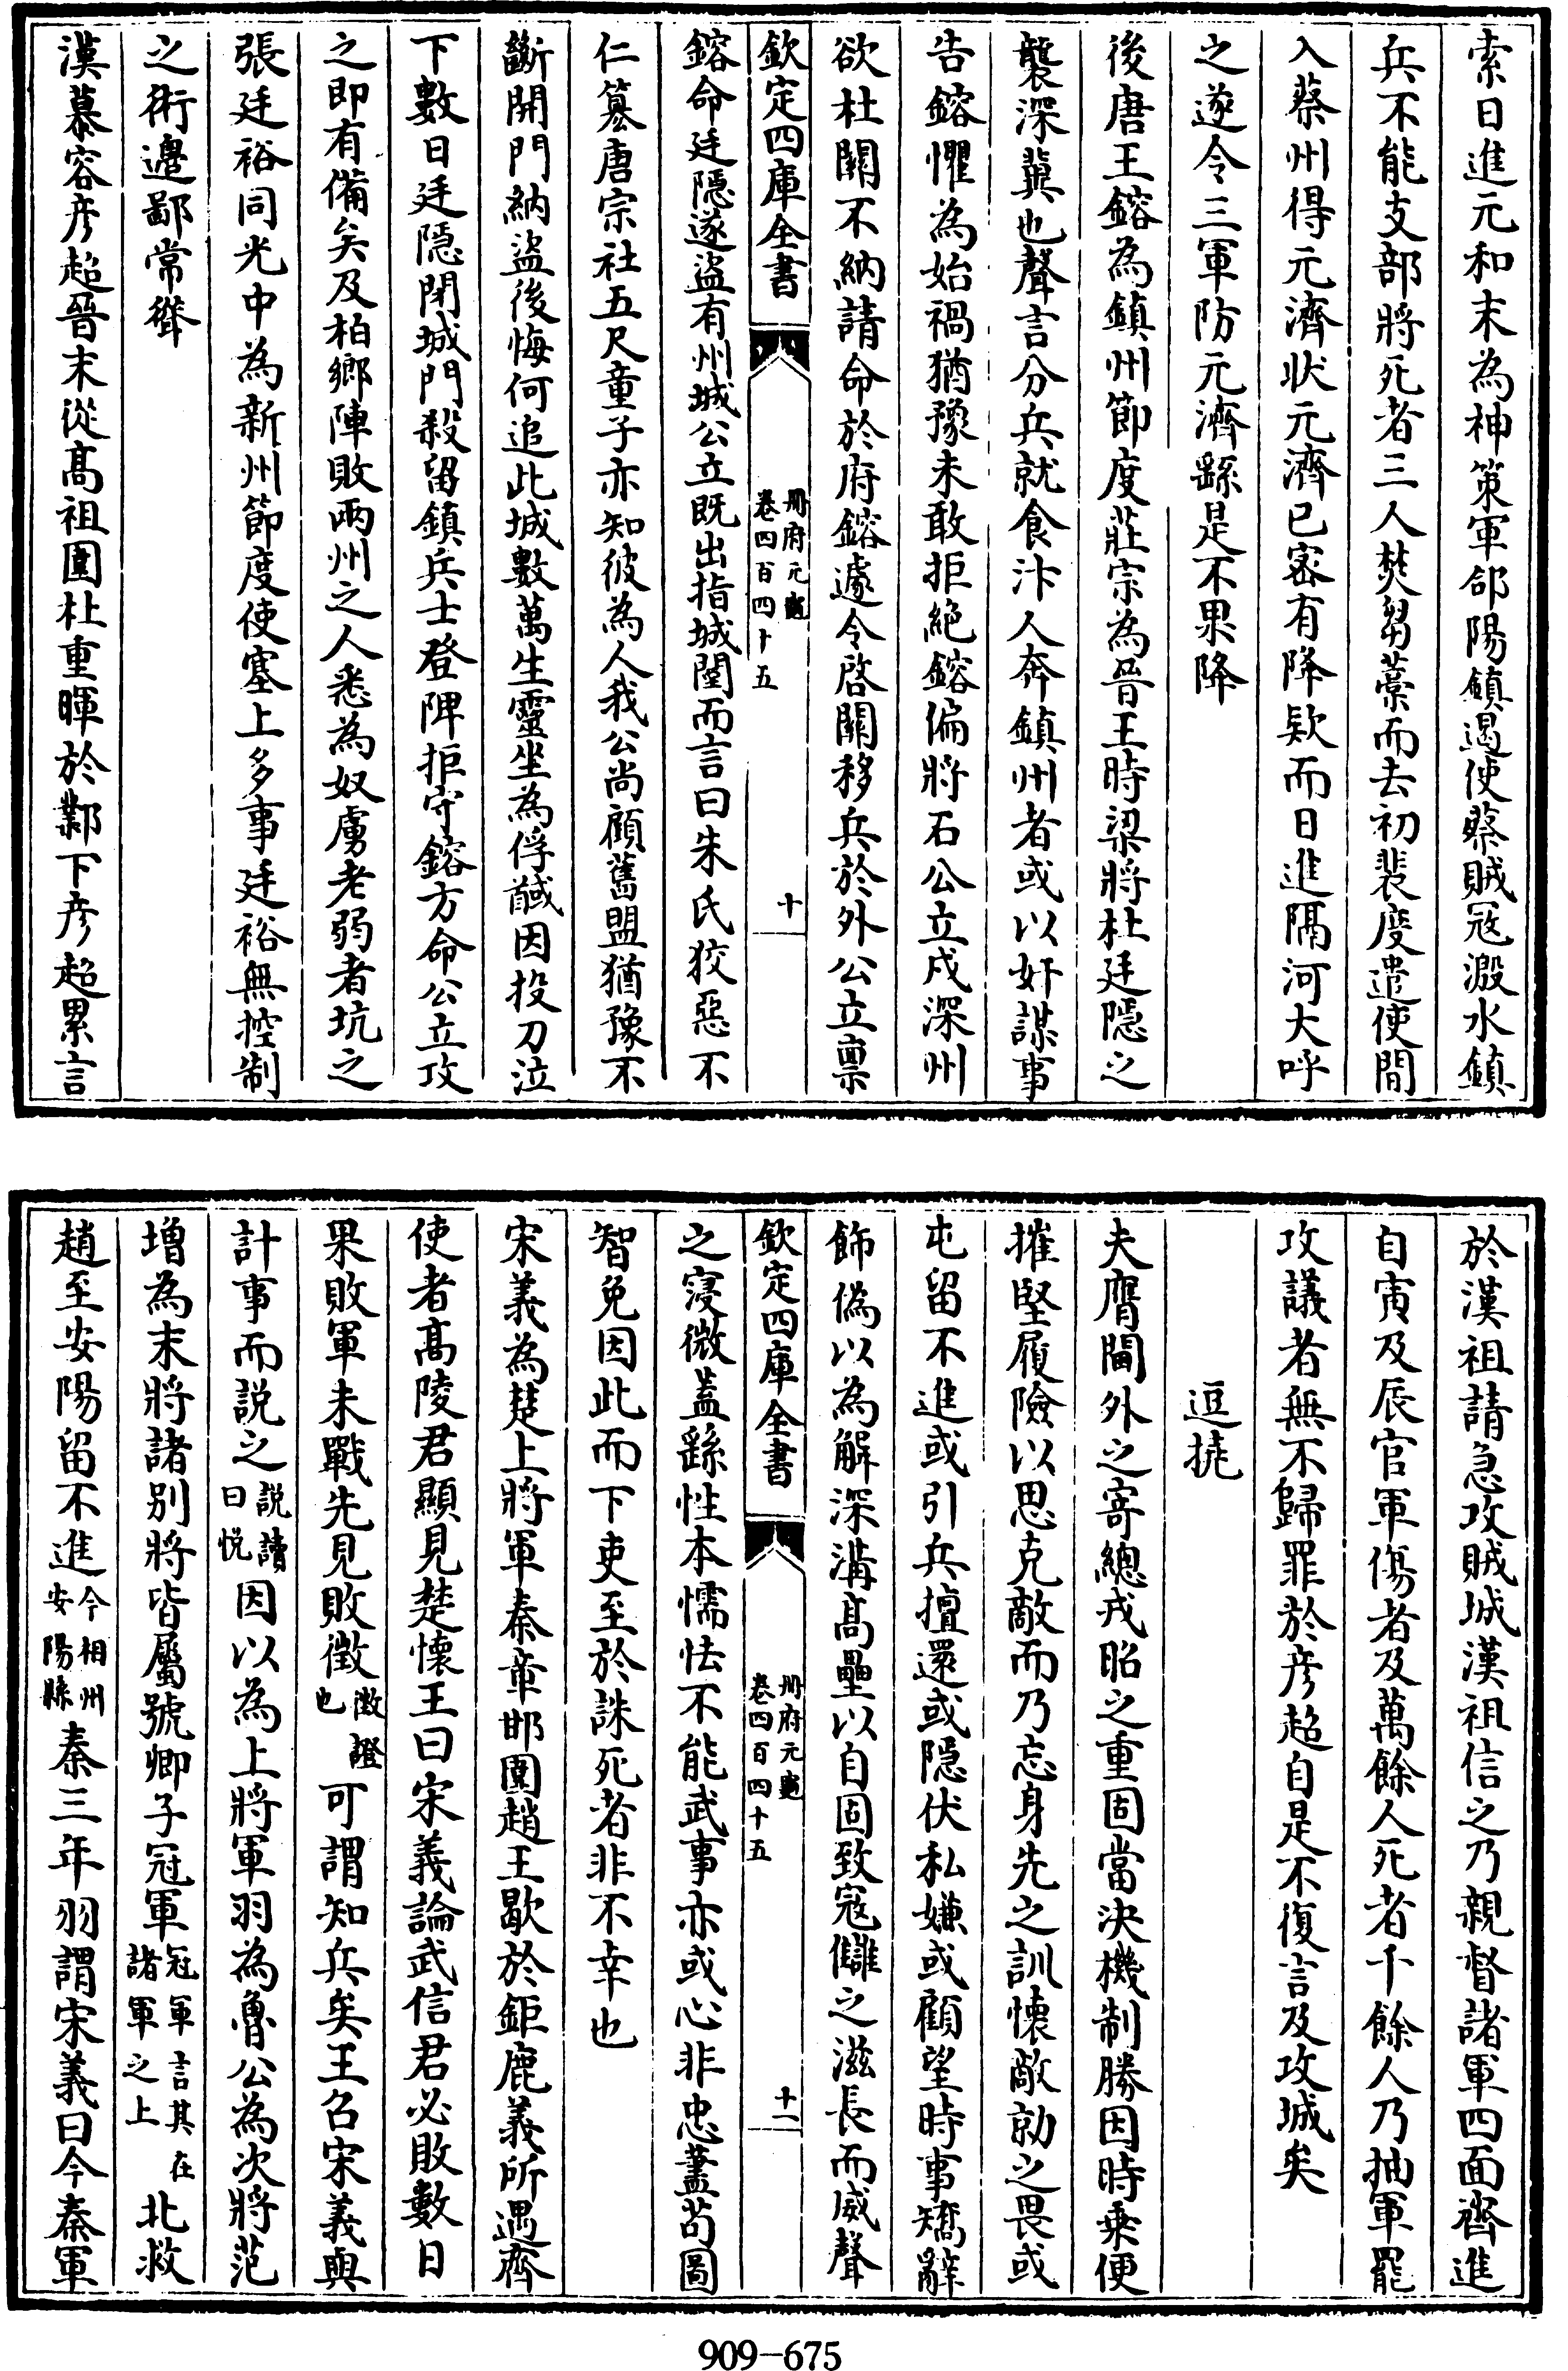 索日進元和末為神策軍郃陽鎮遏使蔡賊冦溵水鎮
兵不能支部將死者三人焚芻藁而去初裴度遣使間
入蔡州得元濟狀元濟已密有降欵而日進隔河大呼
之遂令三軍防元濟繇是不果降
後唐王鎔為鎮州節度莊宗為晉王時梁將杜廷隱之
襲深冀也聲言分兵就食汴人奔鎮州者或以奸謀事
告鎔懼為始禍猶豫未敢拒絶鎔偏將石公立戍深州
欲杜闗不納請命於府鎔遽令啓闗移兵於外公立禀
欽定四庫全書
冊府元龜
卷四百四十五
十
鎔命廷隱遂盜有州城公立既出指城闉而言曰朱氏狡惡不
仁簒唐宗社五尺童子亦知彼為人我公尚顧舊盟猶豫不
斷開門納盜後悔何追此城數萬生靈坐為俘馘因投刀泣
下數日廷隱閉城門殺留鎮兵士登陴拒守鎔方命公立攻
之即有備矣及柏鄉陣敗兩州之人悉為奴虜老弱者坑之
張廷裕同光中為新州節度使塞上多事廷裕無控制
之術邊鄙常聳
漢慕容彦超晉末從髙祖圍杜重暉於鄴下彦超累言
於漢祖請急攻賊城漢祖信之乃親督諸軍四面齊進
自寅及辰官軍傷者及萬餘人死者千餘人乃抽軍罷
攻議者無不歸罪於彦超自是不復言及攻城矣
逗撓
夫膺閫外之寄總戎昭之重固當決機制勝因時乗便
摧堅履險以思克敵而乃忘身先之訓懐敵勍之畏或
屯留不進或引兵擅還或隱伏私嫌或顧望時事矯辭
飾偽以為解深溝髙壘以自固致冦讎之滋長而威聲
欽定四庫全書
冊府元龜
卷四百四十五
十一
之寖微蓋繇性本懦怯不能武事亦或心非忠藎茍圖
智免因此而下吏至於誅死者非不幸也
宋義為楚上將軍秦章邯圍趙王歇於鉅鹿義所遇齊
使者髙陵君顯見楚懐王曰宋義論武信君必敗數日
果敗軍未戰先見敗徴徴證也可謂知兵矣王召宋義與
計事而説之説讀曰悦因以為上將軍羽為魯公為次將范
増為末將諸別將皆屬號卿子冠軍冠軍言其在諸軍之上北救
趙至安陽留不進今相州安陽縣秦三年羽謂宋義曰今秦軍
909-675